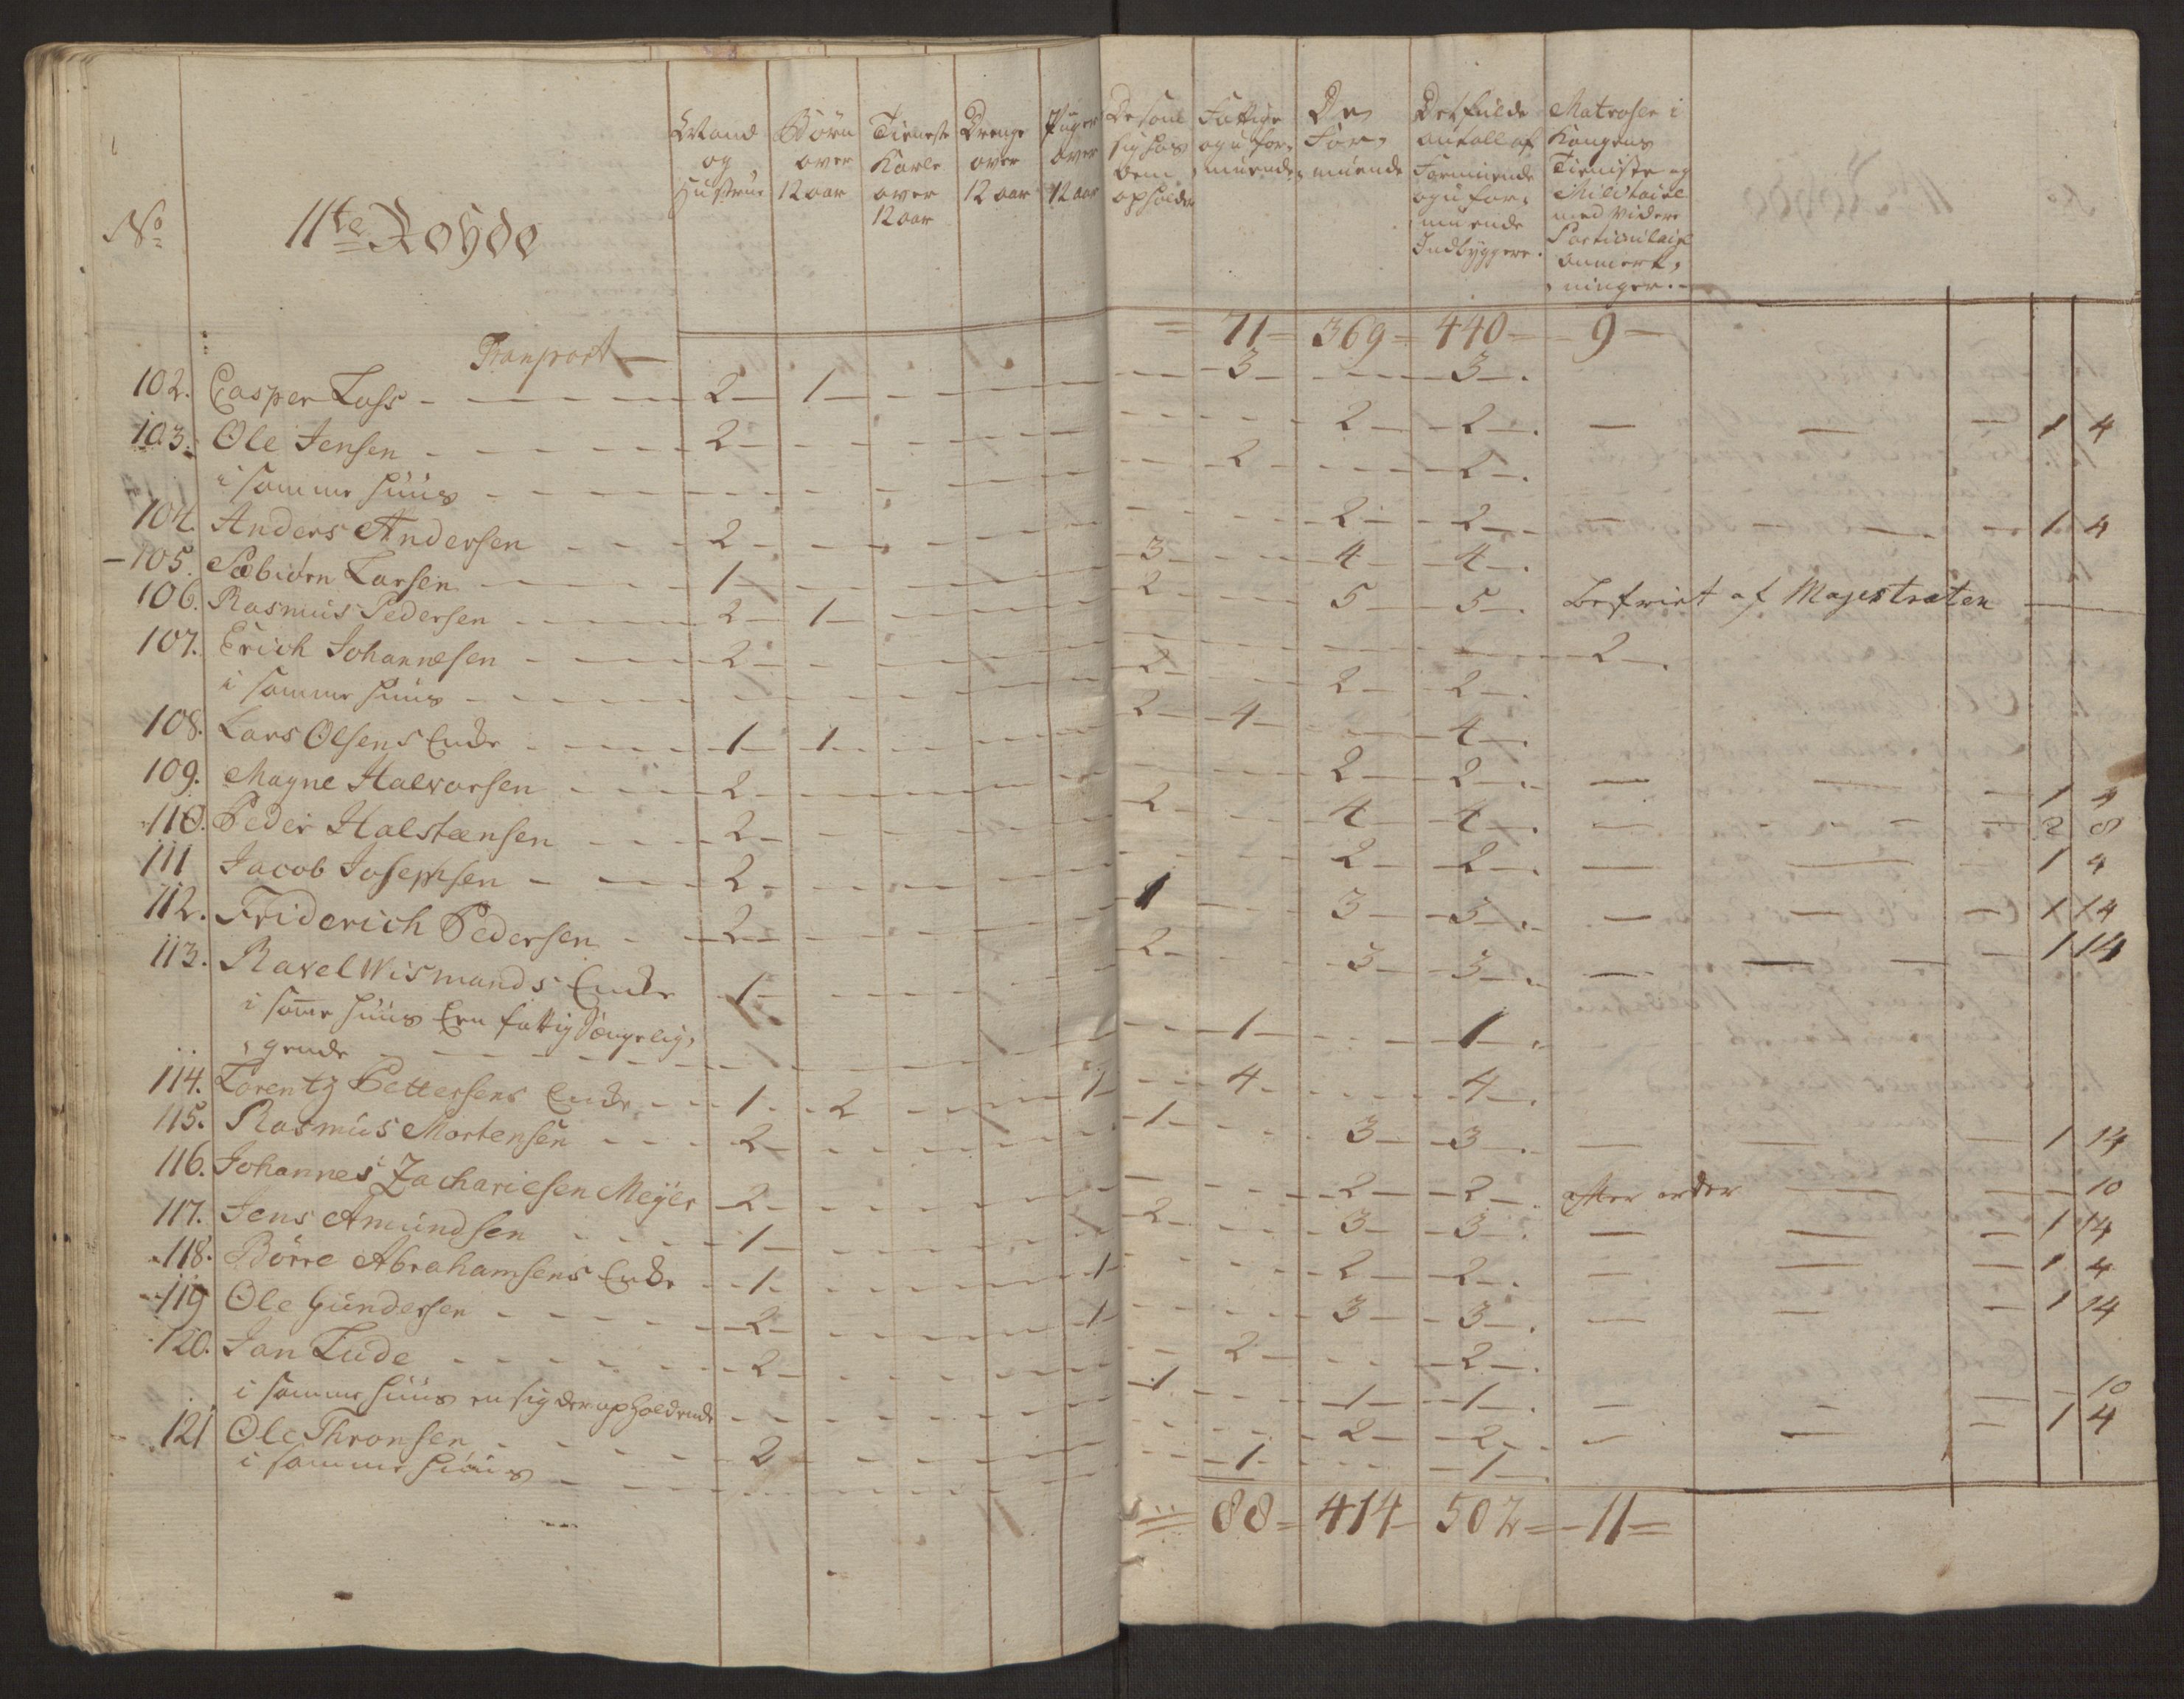 No
11te Rohde
Mand og Hustrue
Børn over 12 aar
Tieneste Karle over 12 aar
Drenge over 12 aar
Piger over 12 aar
De som sig hos dem opholder
Fattige og ufor, muende
De For, muende
Det fulde antall af Formuende og ufor, muende Indbyggere.
Matroser i Kongens Tieniste og med videre anmerk, ninger.
Transport — = 71 = 369 = 440 = 9 —
102. Casper Lass - 2 - 1 - 3 - 3 -
103. Ole Jensen - 2 - 2 - 2 - 1 4
i samme Huus - 2 - 2 -
104. Anders Andersen - 2 - 2 - 2 - 1 4
105. Sæbiørn Larsen - 1 - 3 - 4 - 4 -
106. Rasmus Pedersen - 2 - 1 - 2 - 5 - 5 - befriet af Magestraten
107. Erich Johannesen - 2 - 2 -
i samme Huus - 2 - 2 - 2 -
108. Lars Olsens Enke - 1 - 1 - 2 - 4 - 4 -
109. Magne Halvorsen - 2 - 2 - 2 - 1 4
110. Peder Halstensen - 2 - 2 - 4 - 4 - 2 8
111 Jacob Josephsen - 2 - 2 - 2 - 1 4
112. Friderich Pedersen - 2 - 1 - 3 - 3 - 1 14
113. Ravel Wismands Enke - 1 - 2 - 3 - 3 - 1 14
i samme Huus Een fattig Sængelig,
gende - 1 - 1 -
114. Lorentz Pettersens Enke - 1 - 2 - 1 - 4 - 4 -
115. Rasmus Mortensen - 2 - 1 - 3 - 3 - 1 14
116. Johannes Zachariesen Meyer - 2 - 2 - 2 - efter order - 10
117. Jens Amundsen - 1 - 2 - 3 - 3 - 1 14
118. Børre Abrahamsens Enke - 1 - 1 - 2 - 2 - 1 4
119 Ole Gundersen - 2 - 1 - 3 - 3 - 1 14
120. Jan Lude - 2 - 2 - 2 -
i samme Huus en sig der opholdende - 1 - 1 - 1 - 10
121 Ole Thronsen - 2 - 2 - 2 - 1 4
i samme Huus - 1 - 1 -
88 = 414 - 502 = 11 =